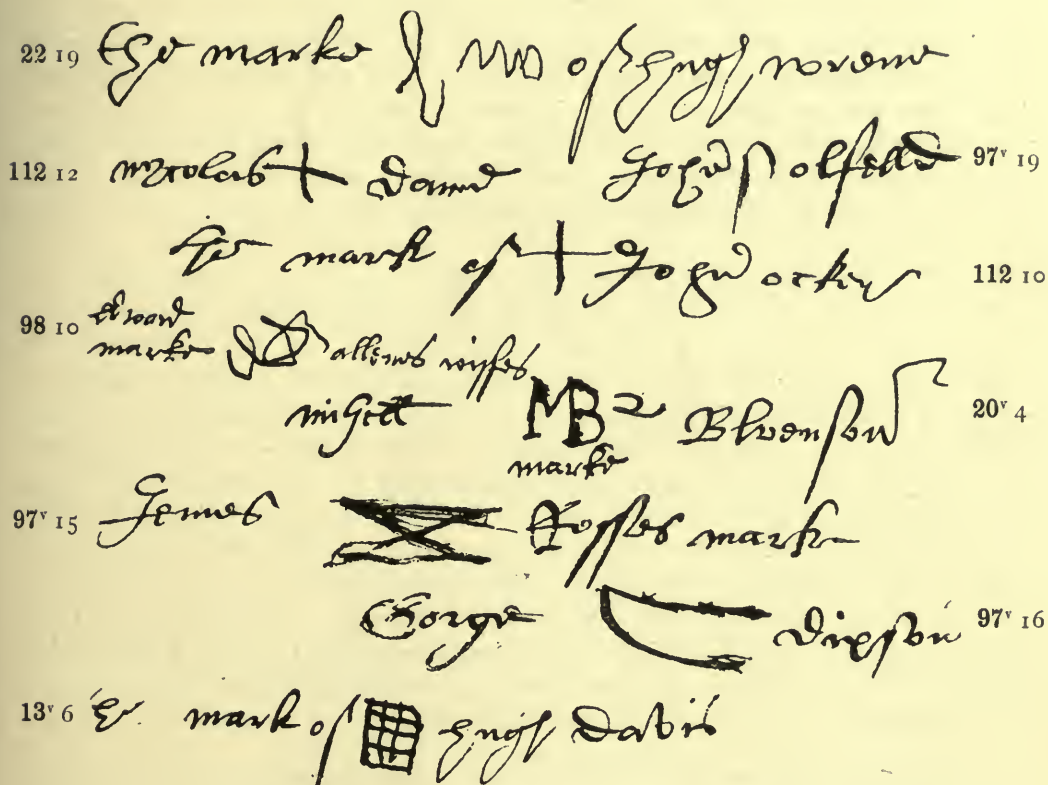 22 19 the marke of hugh wrene
112 12 nycolas dame John olfelld 97ᵛ 19
the mark of John ockers 112 10
98 10 edward
marke allenes wiffes
mihell MB Blvenson 20ᵛ 4
marke
97ᵛ 15 Jemes Rosses mark
Gorge dixson 97ᵛ 16
13ᵛ 6 the mark of hugh davis